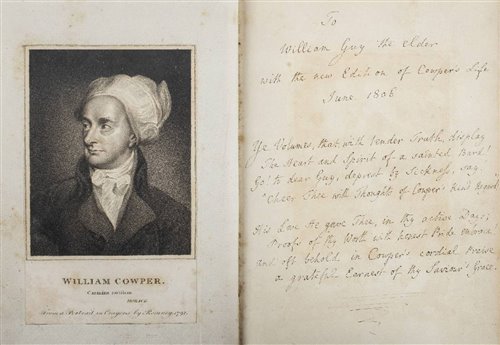 WILLIAM COWPER.
From a Portrait in Crayons by Romney, 1792.
To
William Guy the elder
with the new Edition of Cowper's Life
June 1806
Ye Volumes, that with tender Truth, display
The Heart and Spirit of a sainted Bard!
Go! to dear Guy, deprest by Sickness, say
"Cheer Thee with Thoughts of Cowper's kind
His Love He gave Thee, in thy active Day;
Proofs of thy Worth with honest Pride embrace!
and oft behold in Cowper's cordial Praise
a grateful Earnest of thy Saviour's Grace.